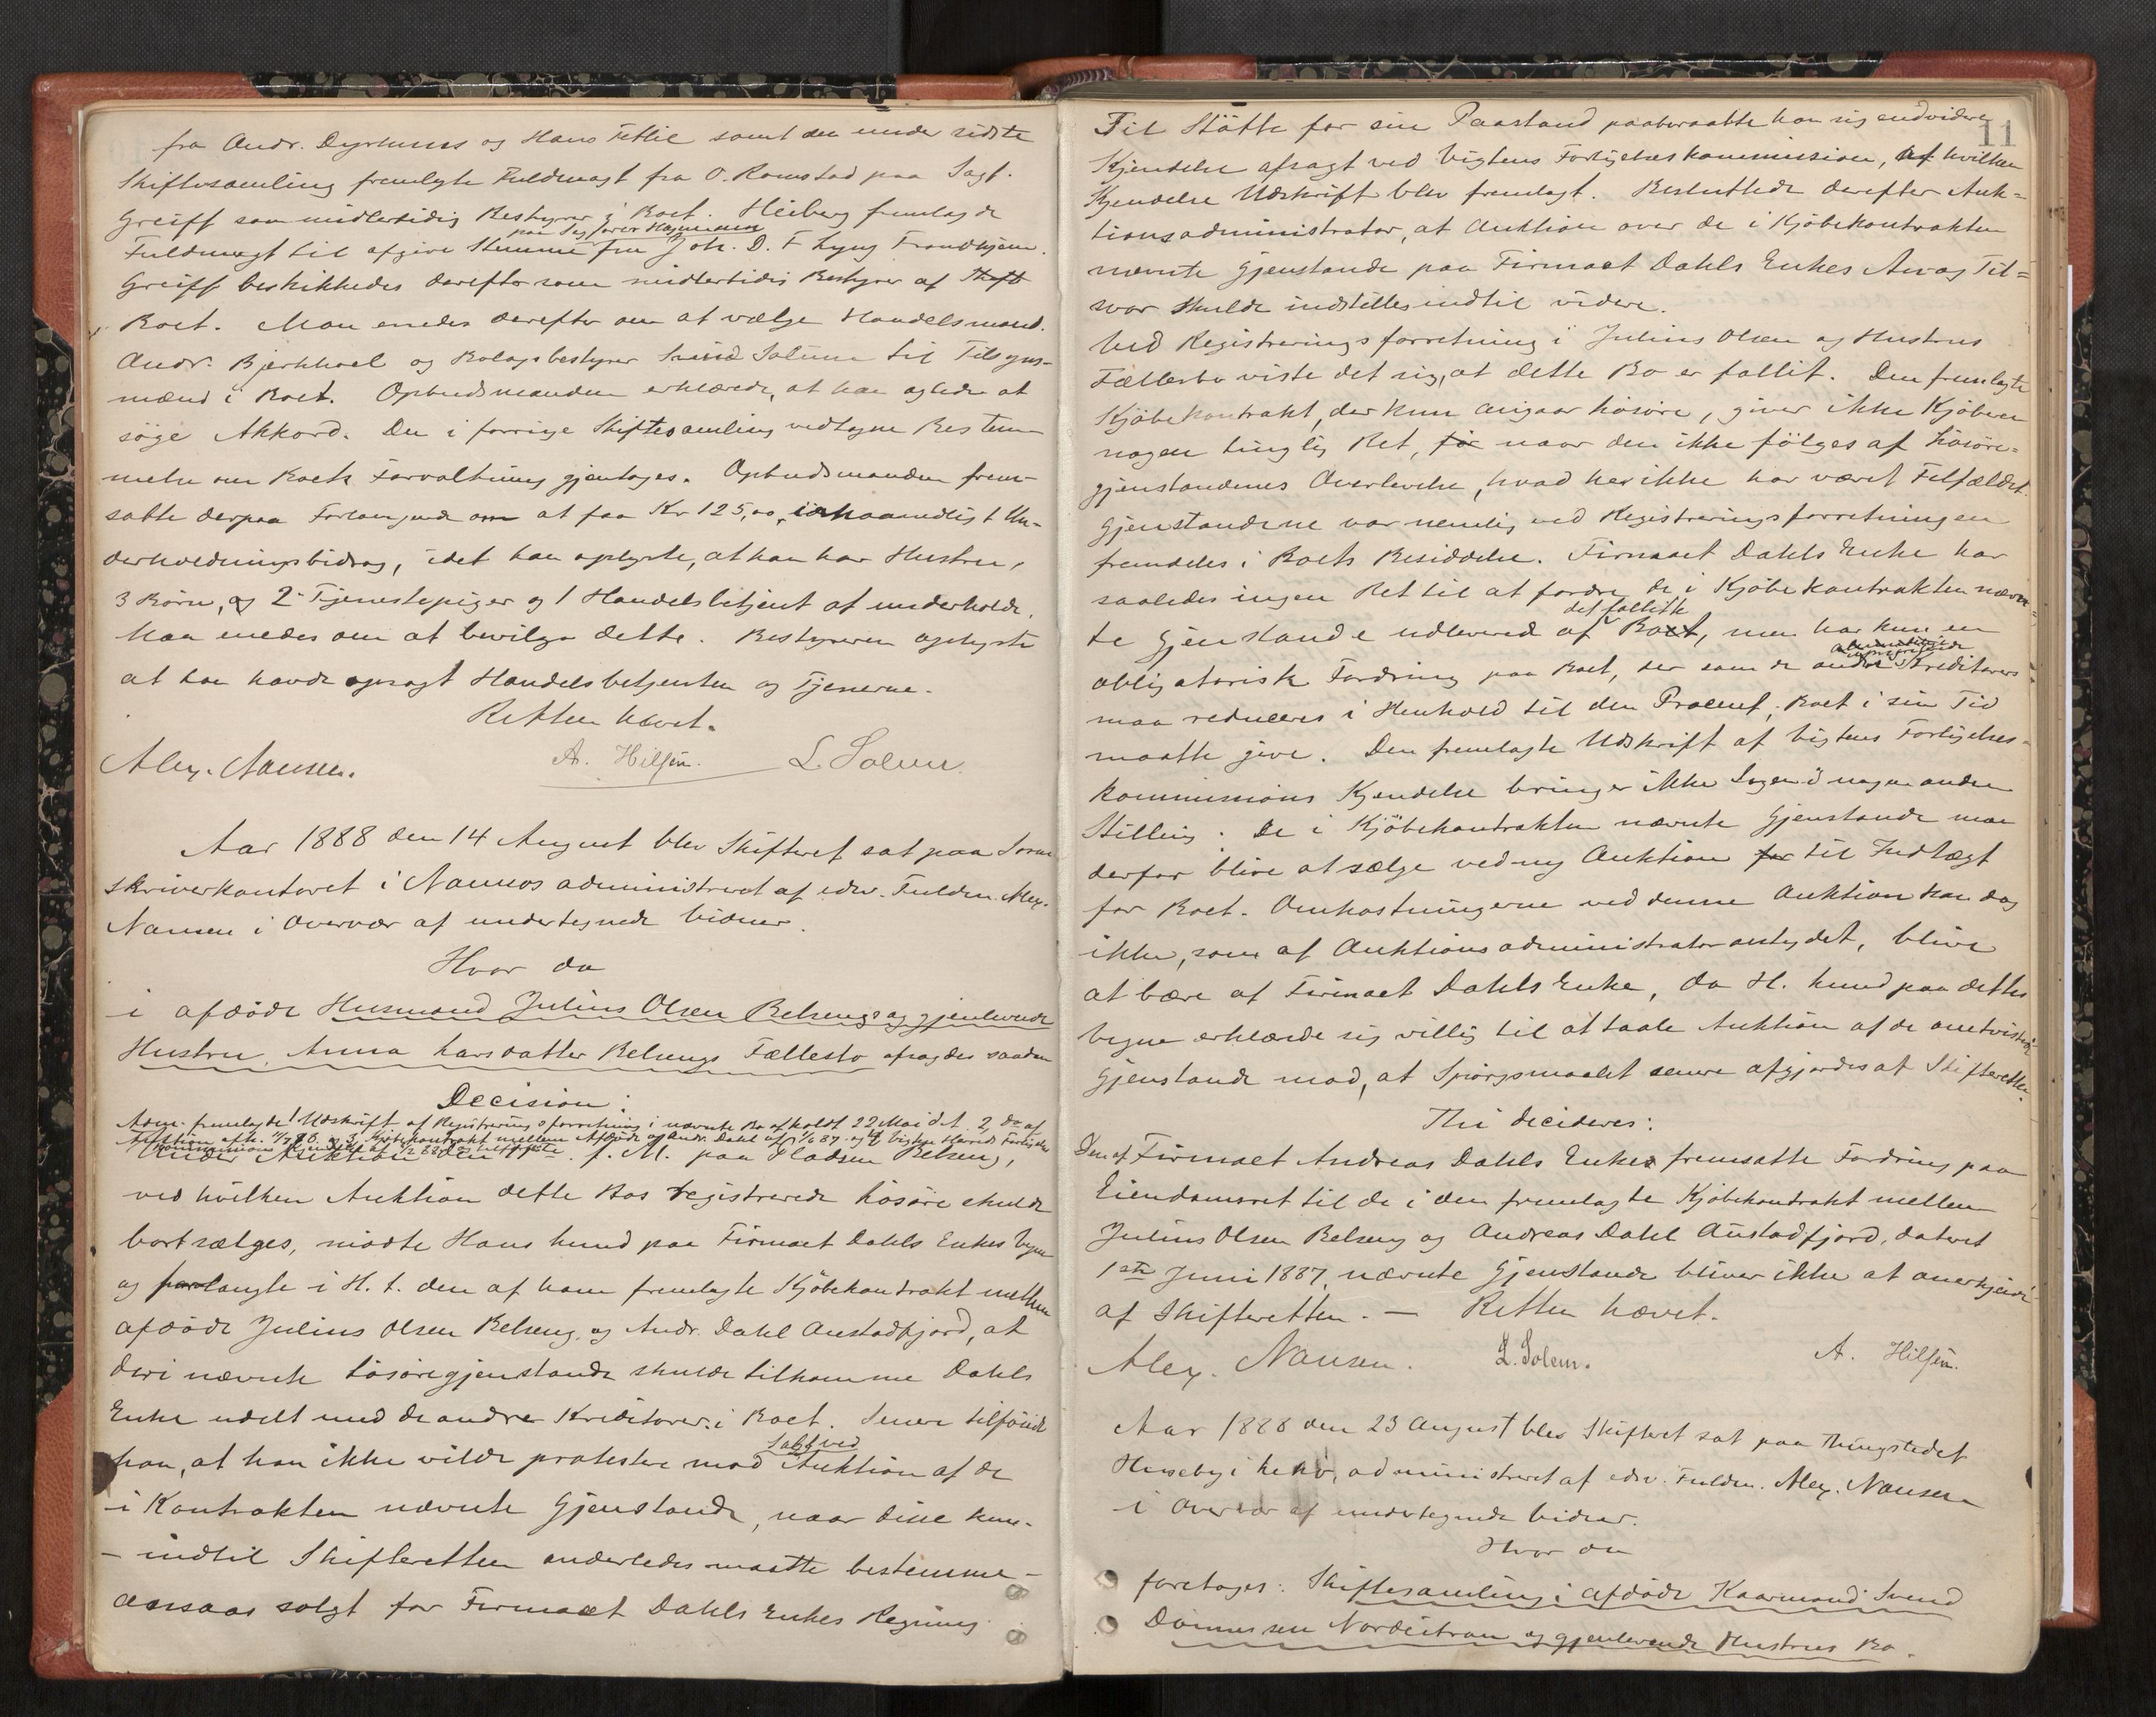 fra Andr. Dyrhuus og Hans Fettie samt den under sidste
Skiftesamling fremlagte Fuldmagt fra O. Ramstad paa Sagf.
Greiff som midlertidig Bestyrer i Boet. Heiberg fremlagde
paa Sagfører Hagemann
Fuldmagt til afgive Stemme fra Joh. D. F Lyng Trondhjem.
Greiff beskikkedes derefter som midlertidig Bestyrer af
Boet. Man enedes derefter om at vælge Handelsmand.
Andr. Bjerkhoel og Bolagsbestyrer Svend Solum til Tilsyns-
mænd i Boet. Opbudsmanden erklærede, at han agtede at
søge Akkord. De i forrige Skiftesamling vedtagne Bestem-
melser om Boets Forvaltning gjentages. Opbudsmanden frem-
satte derpaa Forlangende om at faa Kr 125,00 i maanedligt Un-
derholdningsbidrag, idet han oplyste, at han har Hustru,
3 Børn, og 2 Tjenestepiger og 1 Handelsbetjent at underholde.
Man enedes om at bevilge dette. Bestyreren oplyste
at han havde opsagt Handelsbetjenten og Tjenerne.
Retten hævet.
Alex. Nansen. A. Hilsen. L. Solem
Aar 1888 den 14 August blev Skifteret sat paa Soren-
skriverkontoret i Namsos administreret af edsv. Fuldm. Alex.
Nansen i Overvær af undertegnede Vidner.
Hvor da
i afdøde Husmand Julius Olsen Belsengs og gjenlevende
Hustru, Anna Larsdatter Belsengs Fællesbo afsagdes saadan
Decision:
Adm. fremlagde 1 Udskrift af Registreringsforretning i nævnte Bo afholdt 22 Mai d.A. 2, do af
Auktion afh. 17/7 88. og 3, Kjøbekontrakt mellem Afdøde og Andr. Dahl af 1/6 87. og 4, Vigtens Herreds Forligelses
kommissions Kjendelse af
Under Auktion den 17de f. M. paa Pladsen Belseng,
ved hvilken Auktion dette Bos registrerede Løsøre skulde
bortsælges, mødte Hans Lund paa Firmaet Dahls Enkes Vegne
og forlangte i H. t. den af ham fremlagte Kjøbekontrakt mellem
afdøde Julius Olsen Belseng og Andr. Dahl Austadfjord, at
deri nævnte Løsøregjenstande skulde tilkomme Dahls
Enke udelt med de andre Kreditorer i Boet. Senere tilføiede
Salg ved
han, at han ikke vilde protestere mod Auktion af de
i Kontrakten nævnte Gjenstande, naar disse kun-
- indtil Skifteretten anderledes maatte bestemme -
ansaaes solgt for Firmaet Dahls Enkes Regning
11
Til Støtte for sin Paastand paaberaabte han sig endvidere
Kjendelse afsagt ved Vigtens Forligelseskommission, af hvilken
Kjendelse Udskrift blev fremlagt. Besluttede derefter Auk-
tionsadministrator, at Auktion over de i Kjøbekontrakten
nævnte Gjenstande paa Firmaet Dahls Enkes An og Til-
svar skulde indstilles indtil videre.
Ved Registreringsforretning i Julius Olsen og Hustrus
Fællesbo viste det sig, at dette Bo er fallit. Den fremlagte
Kjøbekontrakt, der kun angaar Løsøre, giver ikke Kjøberen
nogen tinglig Ret, før naar den ikke følges af Løsøre-
gjenstandenes Overlevelse, hvad her ikke har været Tilfældet.
Gjenstandene var nemlig ved Registreringsforretningen
fremdeles i Boets Besiddelse. Firmaet Dahls Enke har
saaledes ingen Ret til at fordre de i Kjøbekontrakten nævn-
det fallitte
te Gjenstande udleveret af Boet, men har kun en
obligatorisk Fordring paa Boet, der som de andre Kreditorers
maa reduceres i Henhold til den Procent, Boet i sin Tid
maatte give. Den fremlagte Udskrift af Vigtens Forligelses-
kommissions Kjendelse bringer ikke Sagen i nogen anden
Stilling. De i Kjøbekontrakten nævnte Gjenstande maa
derfor blive at sælge ved ny Auktion for til Indtægt
for Boet. Omkostningerne ved denne Auktion kan dog
ikke, som af Auktionsadministrator antydet, blive
at bære af Firmaet Dahls Enke, da H. Lund paa dettes
Vegne erklærede sig villig til at taale Auktion af de omtvistede
Gjenstande mod, at Spørgsmaalet senere afgjordes af Skifteretten.
Thi decideres:
Den af Firmaet Andreas Dahls Enke fremsatte Fordring paa
Eiendomsret til de i den fremlagte Kjøbekontrakt mellem
Julius Olsen Belseng og Andreas Dahl Austadfjord, dateret
1ste Juni 1887, nævnte Gjenstande bliver ikke at anerkjende
af Skifteretten. — Retten hævet.
Alex. Nansen. L. Solem. A. Hilsen.
Aar 1888 den 23 August blev Skifteret sat paa Thingstedet
Husebÿ i Leko, administreret af edsv. Fuldm. Alex. Nansen
i Overvær af undertegnede Vidner.
Hvor da
foretoges: Skiftesamling i afdøde Kaarmand Svend
Dønnessen Nordistraum og gjenlevende Hustrues Bo.